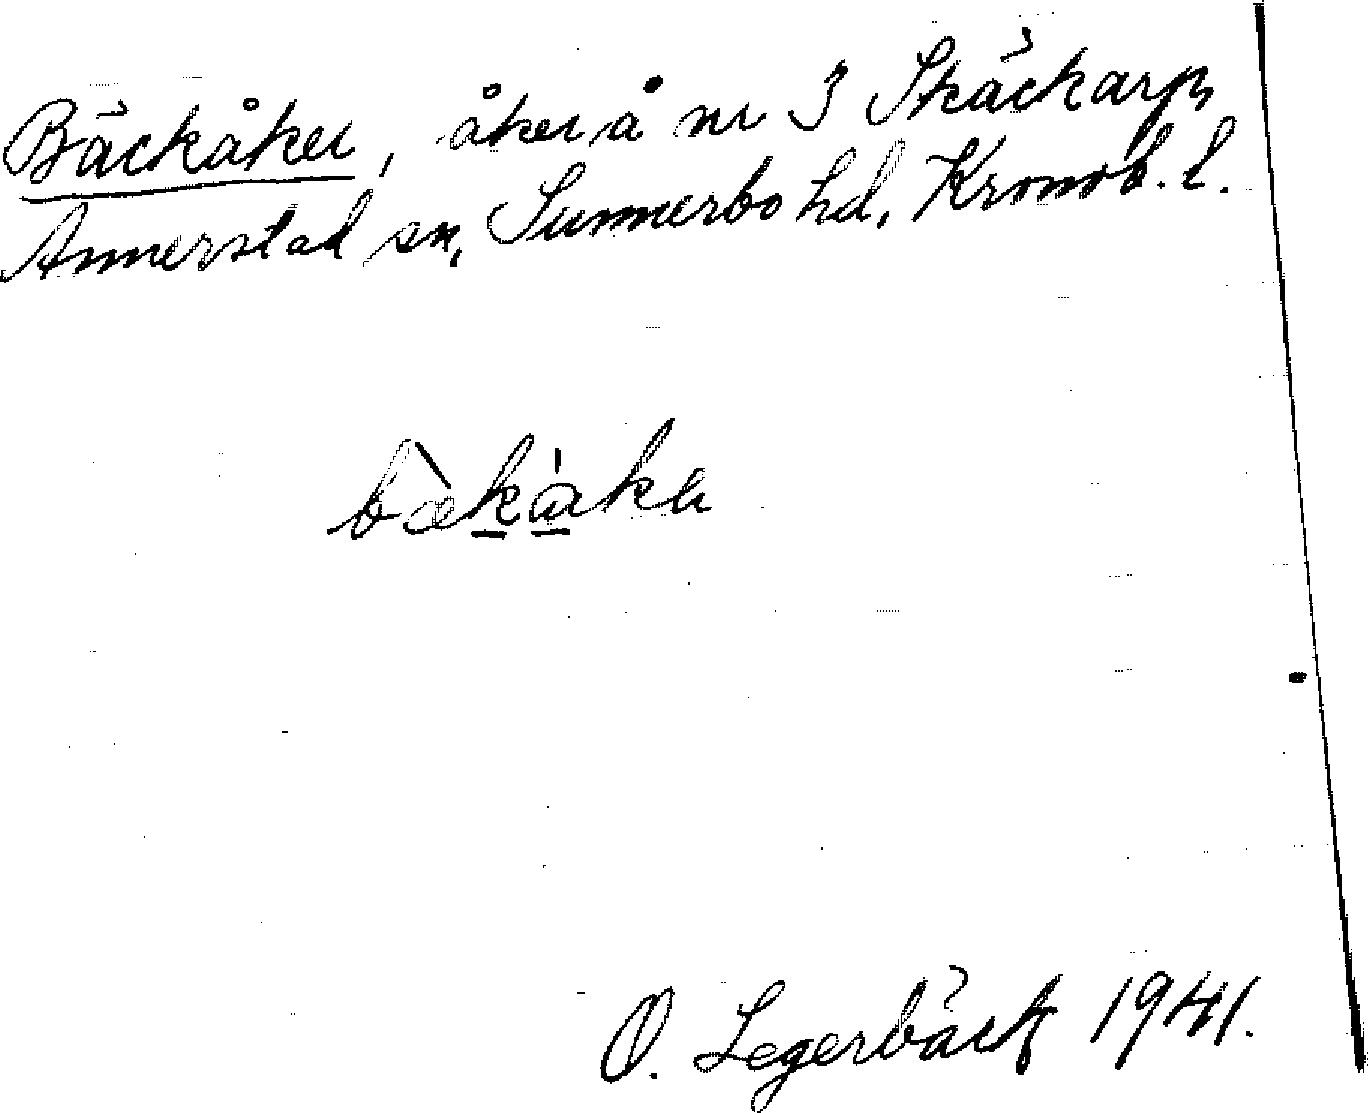 Bäckåker, åker å nr 3 Skäckarp,
Annerstad sn, Sunnerbo hd, Kronob. l.
bækåka
O. Legerbäck 1941.